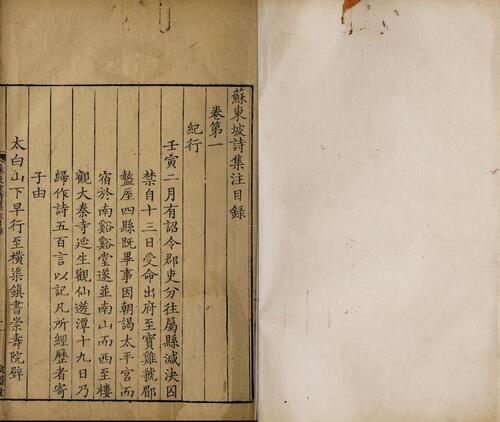 蘇東坡詩集注目錄
卷第一
紀行
壬寅二月有詔令郡吏分往屬縣減決囚
禁自十三日受命出府至寶雞虢郿
盩厔四縣既畢事因朝謁太平宮而
宿於南谿谿堂遂並南山而西至樓
觀大秦寺延生觀仙遊潭十九日乃
歸作詩五百言以記凡所經歷者寄
子由
太白山下早行至橫渠鎮書崇壽院壁